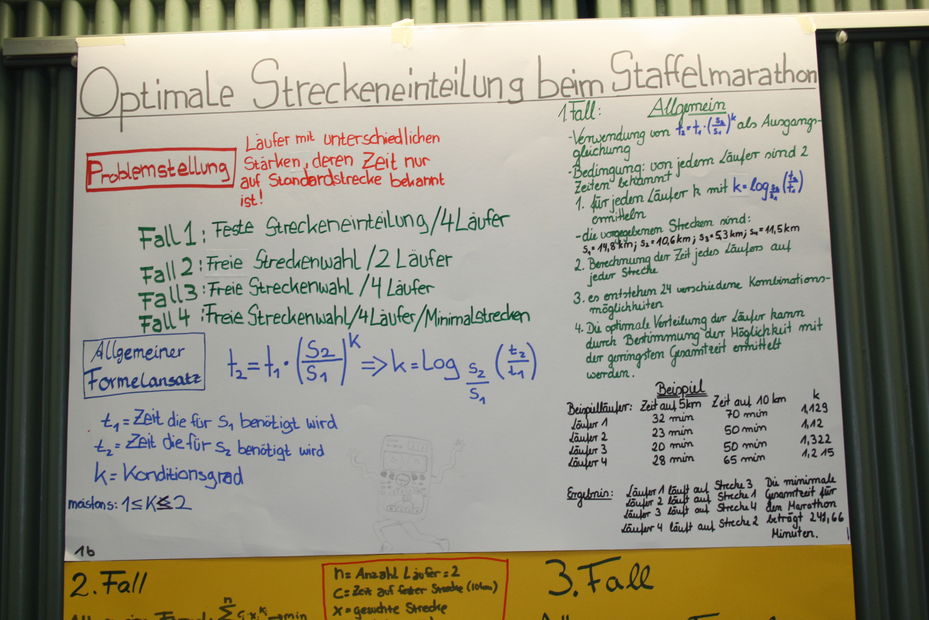 Optimale Streckeneinteilung beim Staffelmarathon
Problemstellung
Läufer mit unterschiedlichen
Stärken, deren Zeit nur
auf Standardstrecke bekannt
ist!
Fall 1: Feste Streckeneinteilung/4 Läufer
Fall 2: Freie Streckenwahl/2 Läufer
Fall 3: Freie Streckenwahl/4 Läufer
Fall 4: Freie Streckenwahl/4 Läufer/Minimalstrecken
Allgemeiner
Formelansatz
t₂ = t₁ · (S₂/S₁)^k => k = Log S₂/S₁ (t₂/t₁)
t₁ = Zeit die für S₁ benötigt wird
t₂ = Zeit die für S₂ benötigt wird
k = Konditionsgrad
meistens: 1 ≤ K ≤ 2
1b
1 Fall: Allgemein
-Verwendung von t₂ = t₁ · (S₂/S₁)^k als Ausgangs-
gleichung
-Bedingung: von jedem Läufer sind 2
Zeiten bekannt
1. für jeden Läufer k mit k = log S₂/S₁ (t₂/t₁)
ermitteln
-die vorgegebenen Strecken sind:
S₁ = 14,8 km; S₂ = 10,6 km; S₃ = 5,3 km; S₄ = 11,5 km
2. Berechnung der Zeit jedes Läufers auf
jeder Strecke
3. es entstehen 24 verschiedene Kombinations-
möglichkeiten
4. Die optimale Verteilung der Läufer kann
durch Bestimmung der Möglichkeit mit
der geringsten Gesamtzeit ermittelt
werden.
Beispiel
Beispielläufer: Zeit auf 5km Zeit auf 10 km k
Läufer 1 32 min 70 min 1,129
Läufer 2 23 min 50 min 1,12
Läufer 3 20 min 50 min 1,322
Läufer 4 28 min 65 min 1,215
Ergebnis: Läufer 1 läuft auf Strecke 3
Läufer 2 läuft auf Strecke 1
Läufer 3 läuft auf Strecke 4
Läufer 4 läuft auf Strecke 2
Die minimale
Gesamtzeit für
den Marathon
beträgt 241,66
Minuten.
2. Fall
n = Anzahl Läufer = 2
C = Zeit auf fester Strecke (10km)
x = gesuchte Strecke
3. Fall